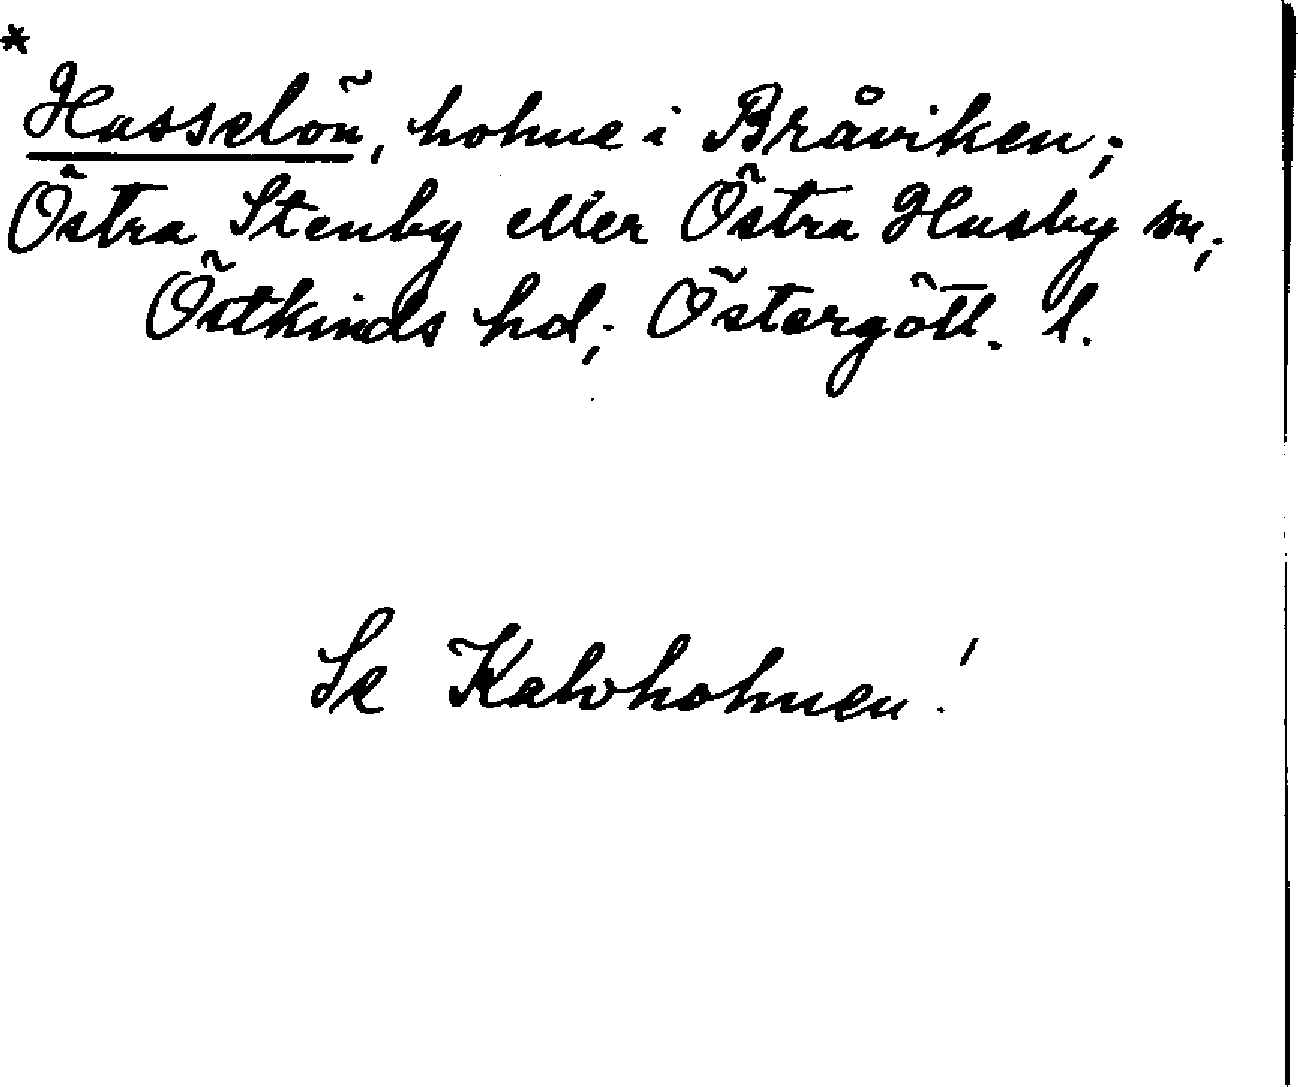 *
Hasselön, holme i Bråviken;
Östra Stenby eller Östra Husby sn;
Östkinds hd; Östergötl. l.
Se Kalvholmen!